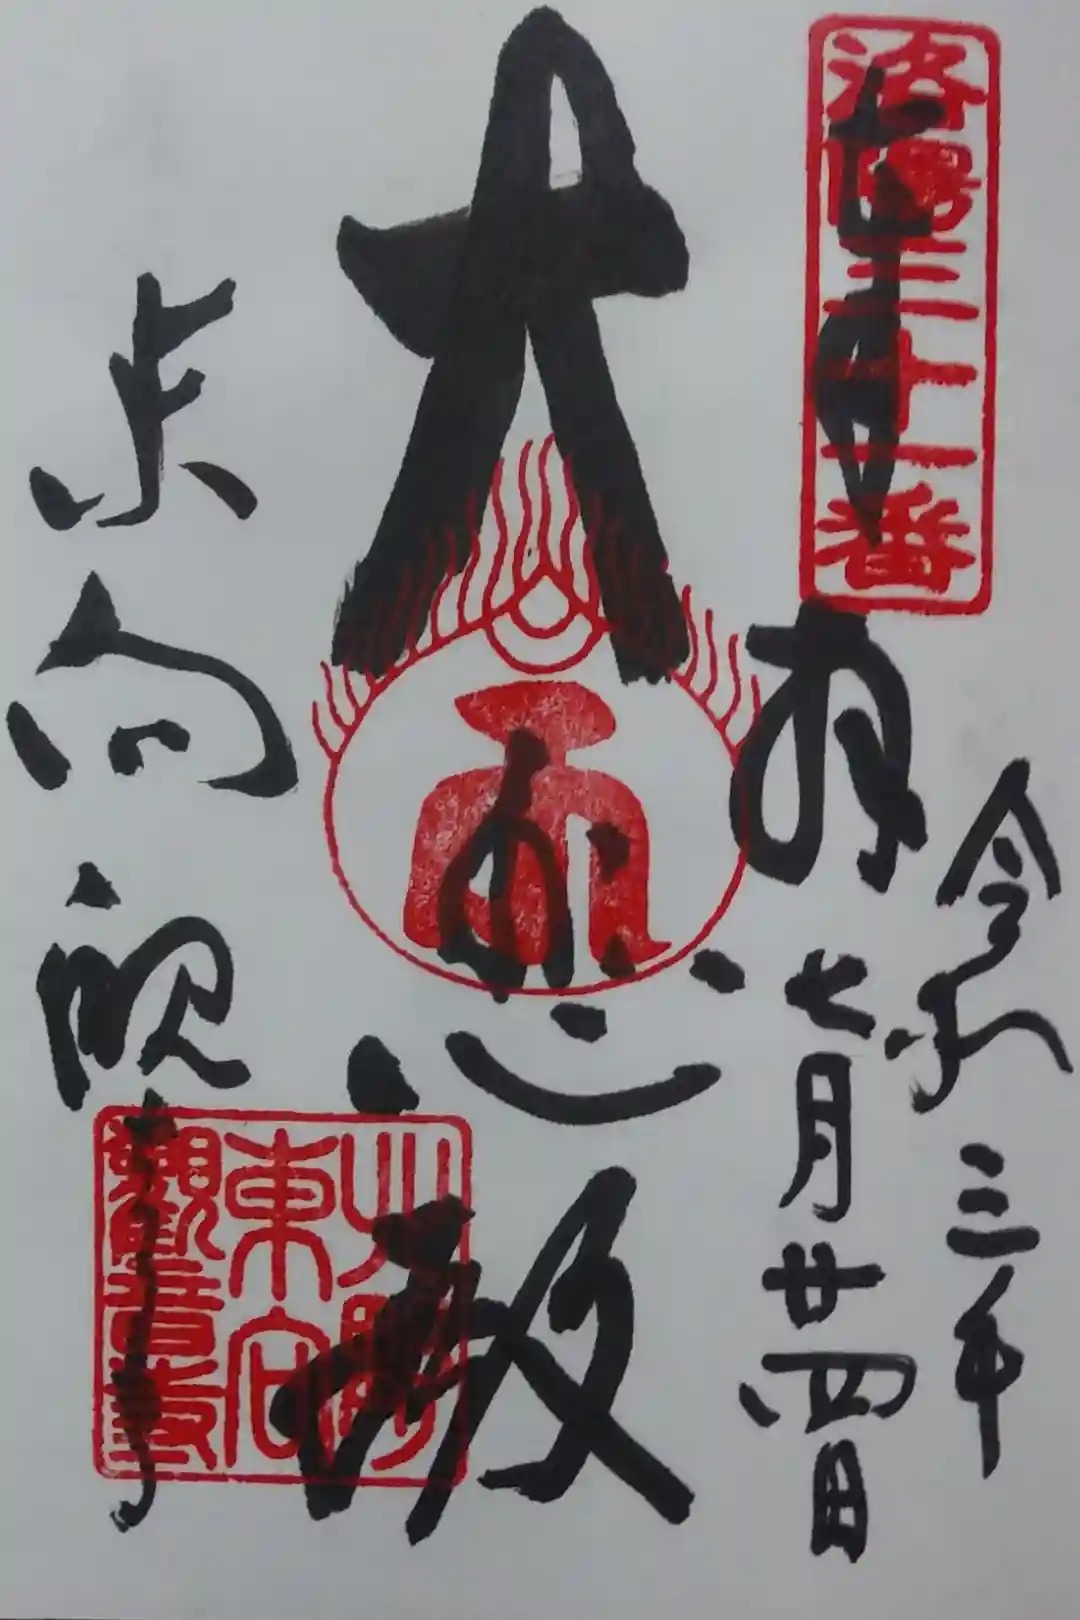 洛陽三十一番
奉拝
令和三年
七月廿四日
大悲殿
東向観音寺
北野
東向
觀音寺